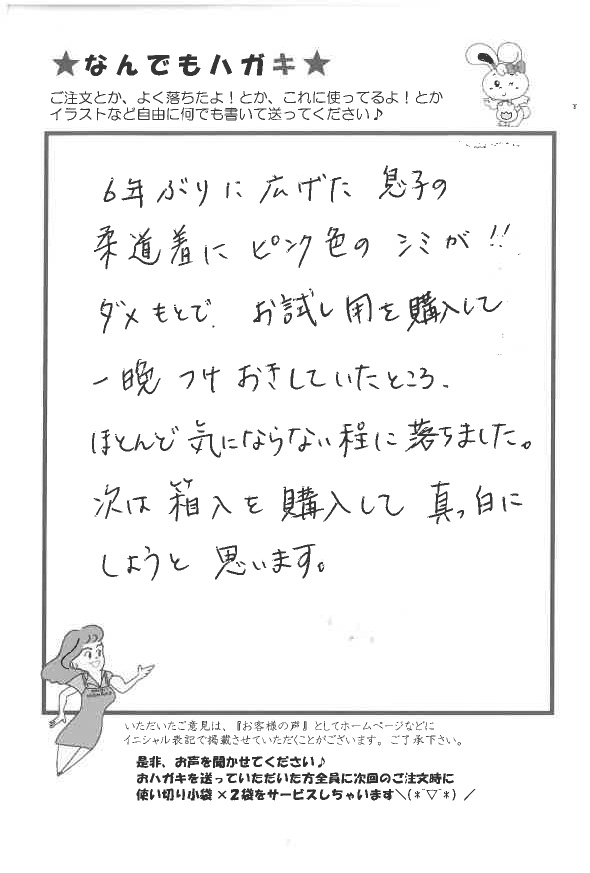 ★なんでもハガキ★
ご注文とか、よく落ちたよ！とか、これに使ってるよ！とか
イラストなど自由に何でも書いて送ってください♪
6年ぶりに広げた 息子の
柔道着に ピンク色の シミが!!
ダメもとで、お試し用を購入して
一晩 つけおきしていたところ、
ほとんど気にならない程に落ちました。
次は 箱入を購入して 真っ白に
しようと 思います。
いただいたご意見は、『お客様の声』としてホームページなどに
イニシャル表記で掲載させていただくことがございます。ご了承下さい。
是非、お声を聞かせてください♪
おハガキを送っていただいた方全員に次回のご注文時に
使い切り小袋×２袋をサービスしちゃいます＼(*¯▽¯*)／